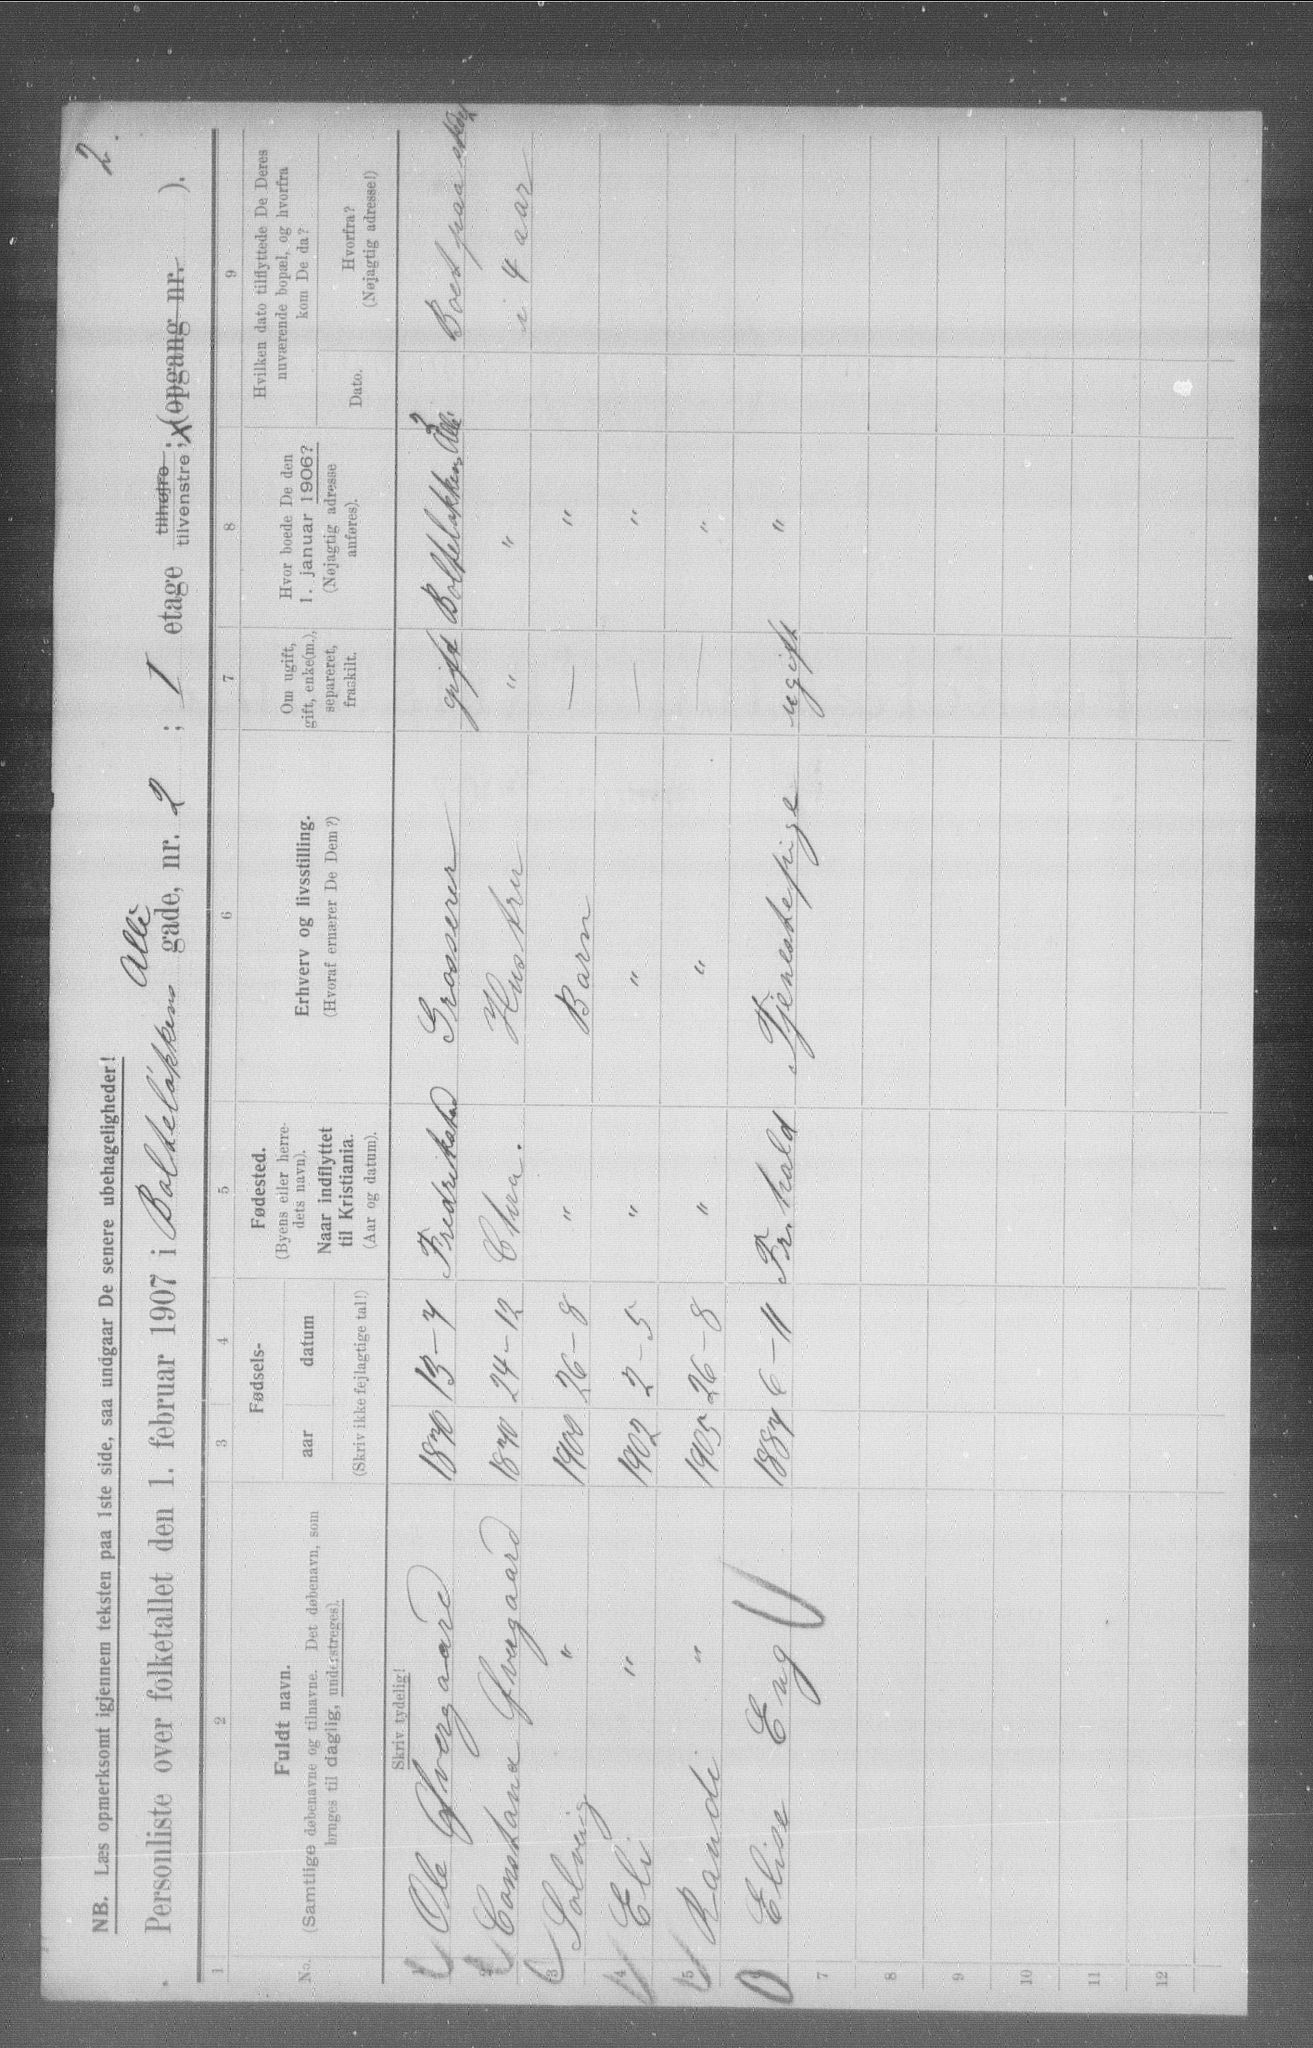 2.
NB. Læs opmerksomt igjennem teksten paa 1ste side, saa undgaar De senere ubehageligheder!
Personliste over folketallet den 1. februar 1907 i Bolteløkkens Allé gade, nr. 2 ; I etage tilhøjre ; tilvenstre ; (opgang nr. ).
1 2 3 4 5 6 7 8 9
No. Fuldt navn. (Samtlige døbenavne og tilnavne. Det døbenavn, som bruges til daglig, understreges). Fødsels- aar datum (Skriv ikke fejlagtige tal!) Fødested. (Byens eller herredets navn). Naar indflyttet til Kristiania. (Aar og datum). Erhverv og livsstilling. (Hvoraf ernærer De Dem?) Om ugift, gift, enke(m.), separeret, fraskilt. Hvor boede De den 1. januar 1906? (Nøjagtig adresse anføres). Hvilken dato tilflyttede De Deres nuværende bopæl, og hvorfra kom De da? Dato. Hvorfra? (Nøjagtig adresse!)
Skriv tydelig!
1 Ole Øvergaard 1870 13-7 Fredrikstad Grosserer gift Bolteløkkens Allé 2 Boet paa
2 Constance Øvergaard 1870 24-12 Chra. Hustru " " i 4 aar
3 Solveig " 1900 26-8 " Barn — "
4 Eli " 1902 2-5 " " — "
5 Randi " 1905 26-8 " " — "
Elise Eng 1887 6-11 Fr.hald Tjenestepige ugift "
7
8
9
10
11
12